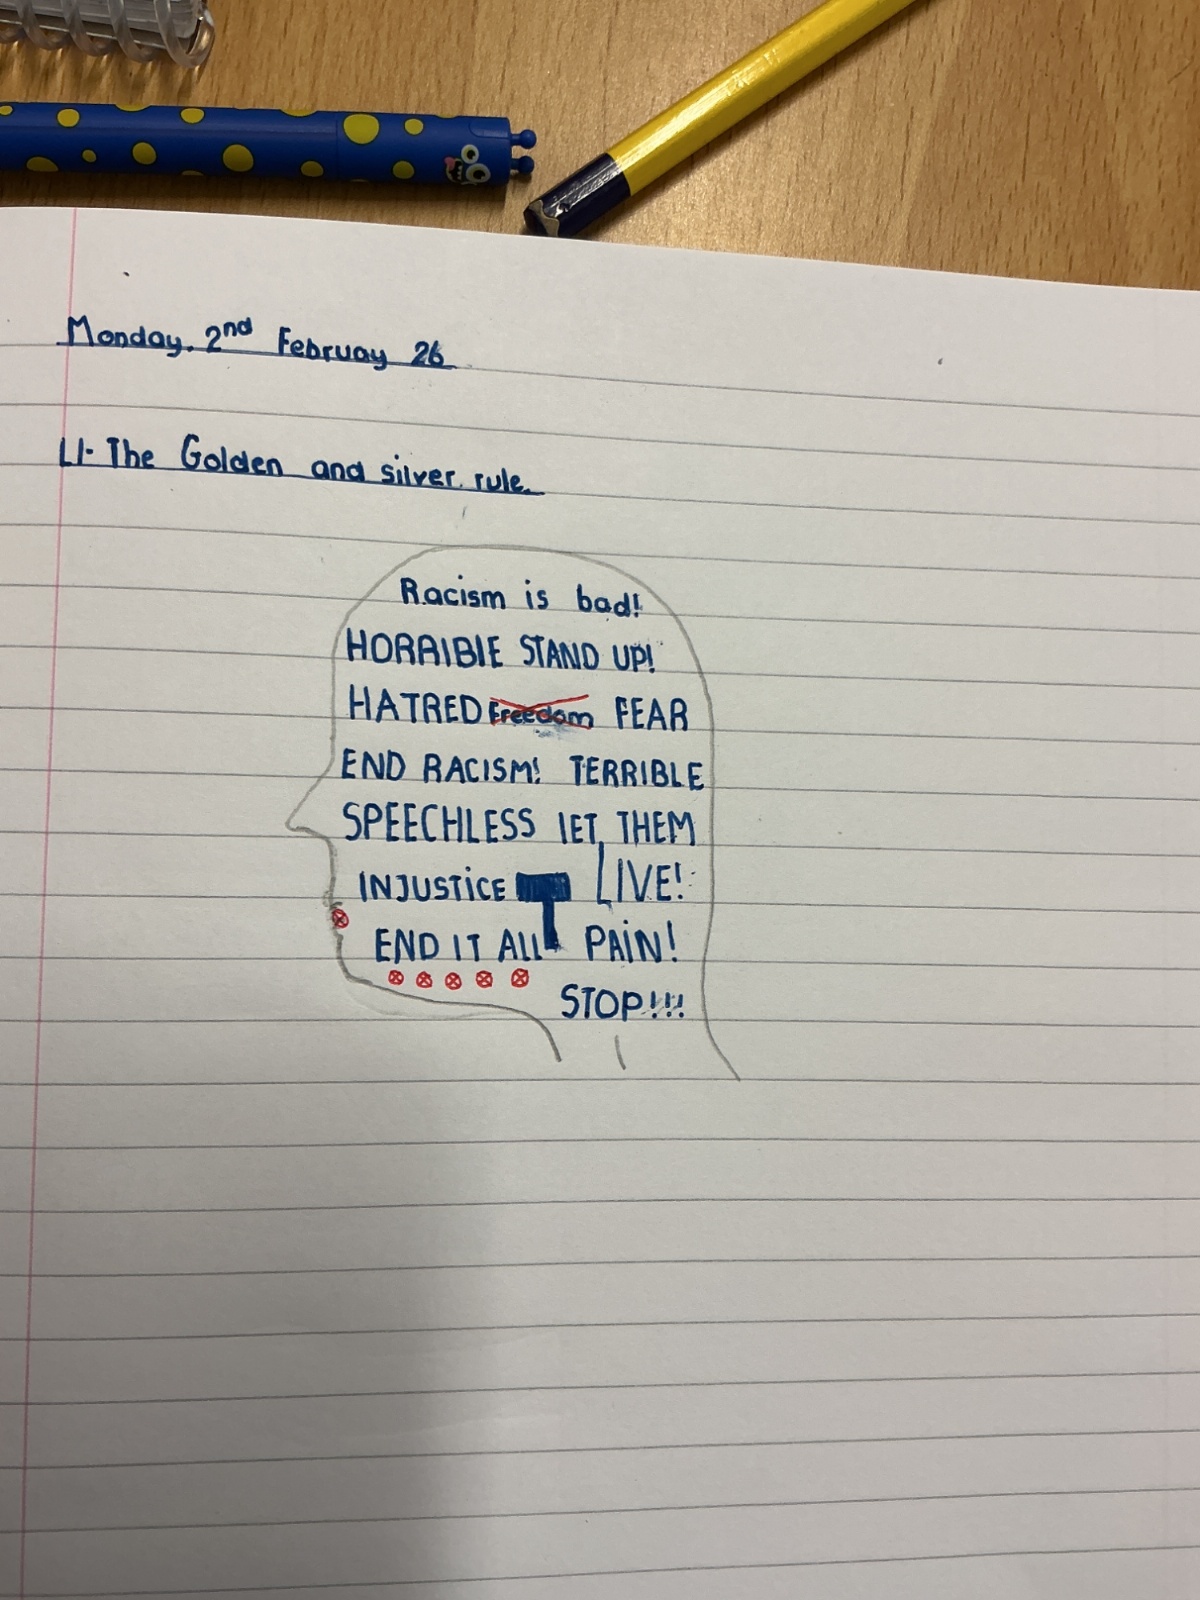 Monday. 2nd Februay 26
LI- The Golden and silver rule.
Racism is bad!
HORRIBlE STAND UP!
HATRED Freedom FEAR
END RACISM! TERRIBLE
SPEECHLESS lET THEM
INJUSTiCE LIVE!
END IT ALL PAiN!
STOP!!!